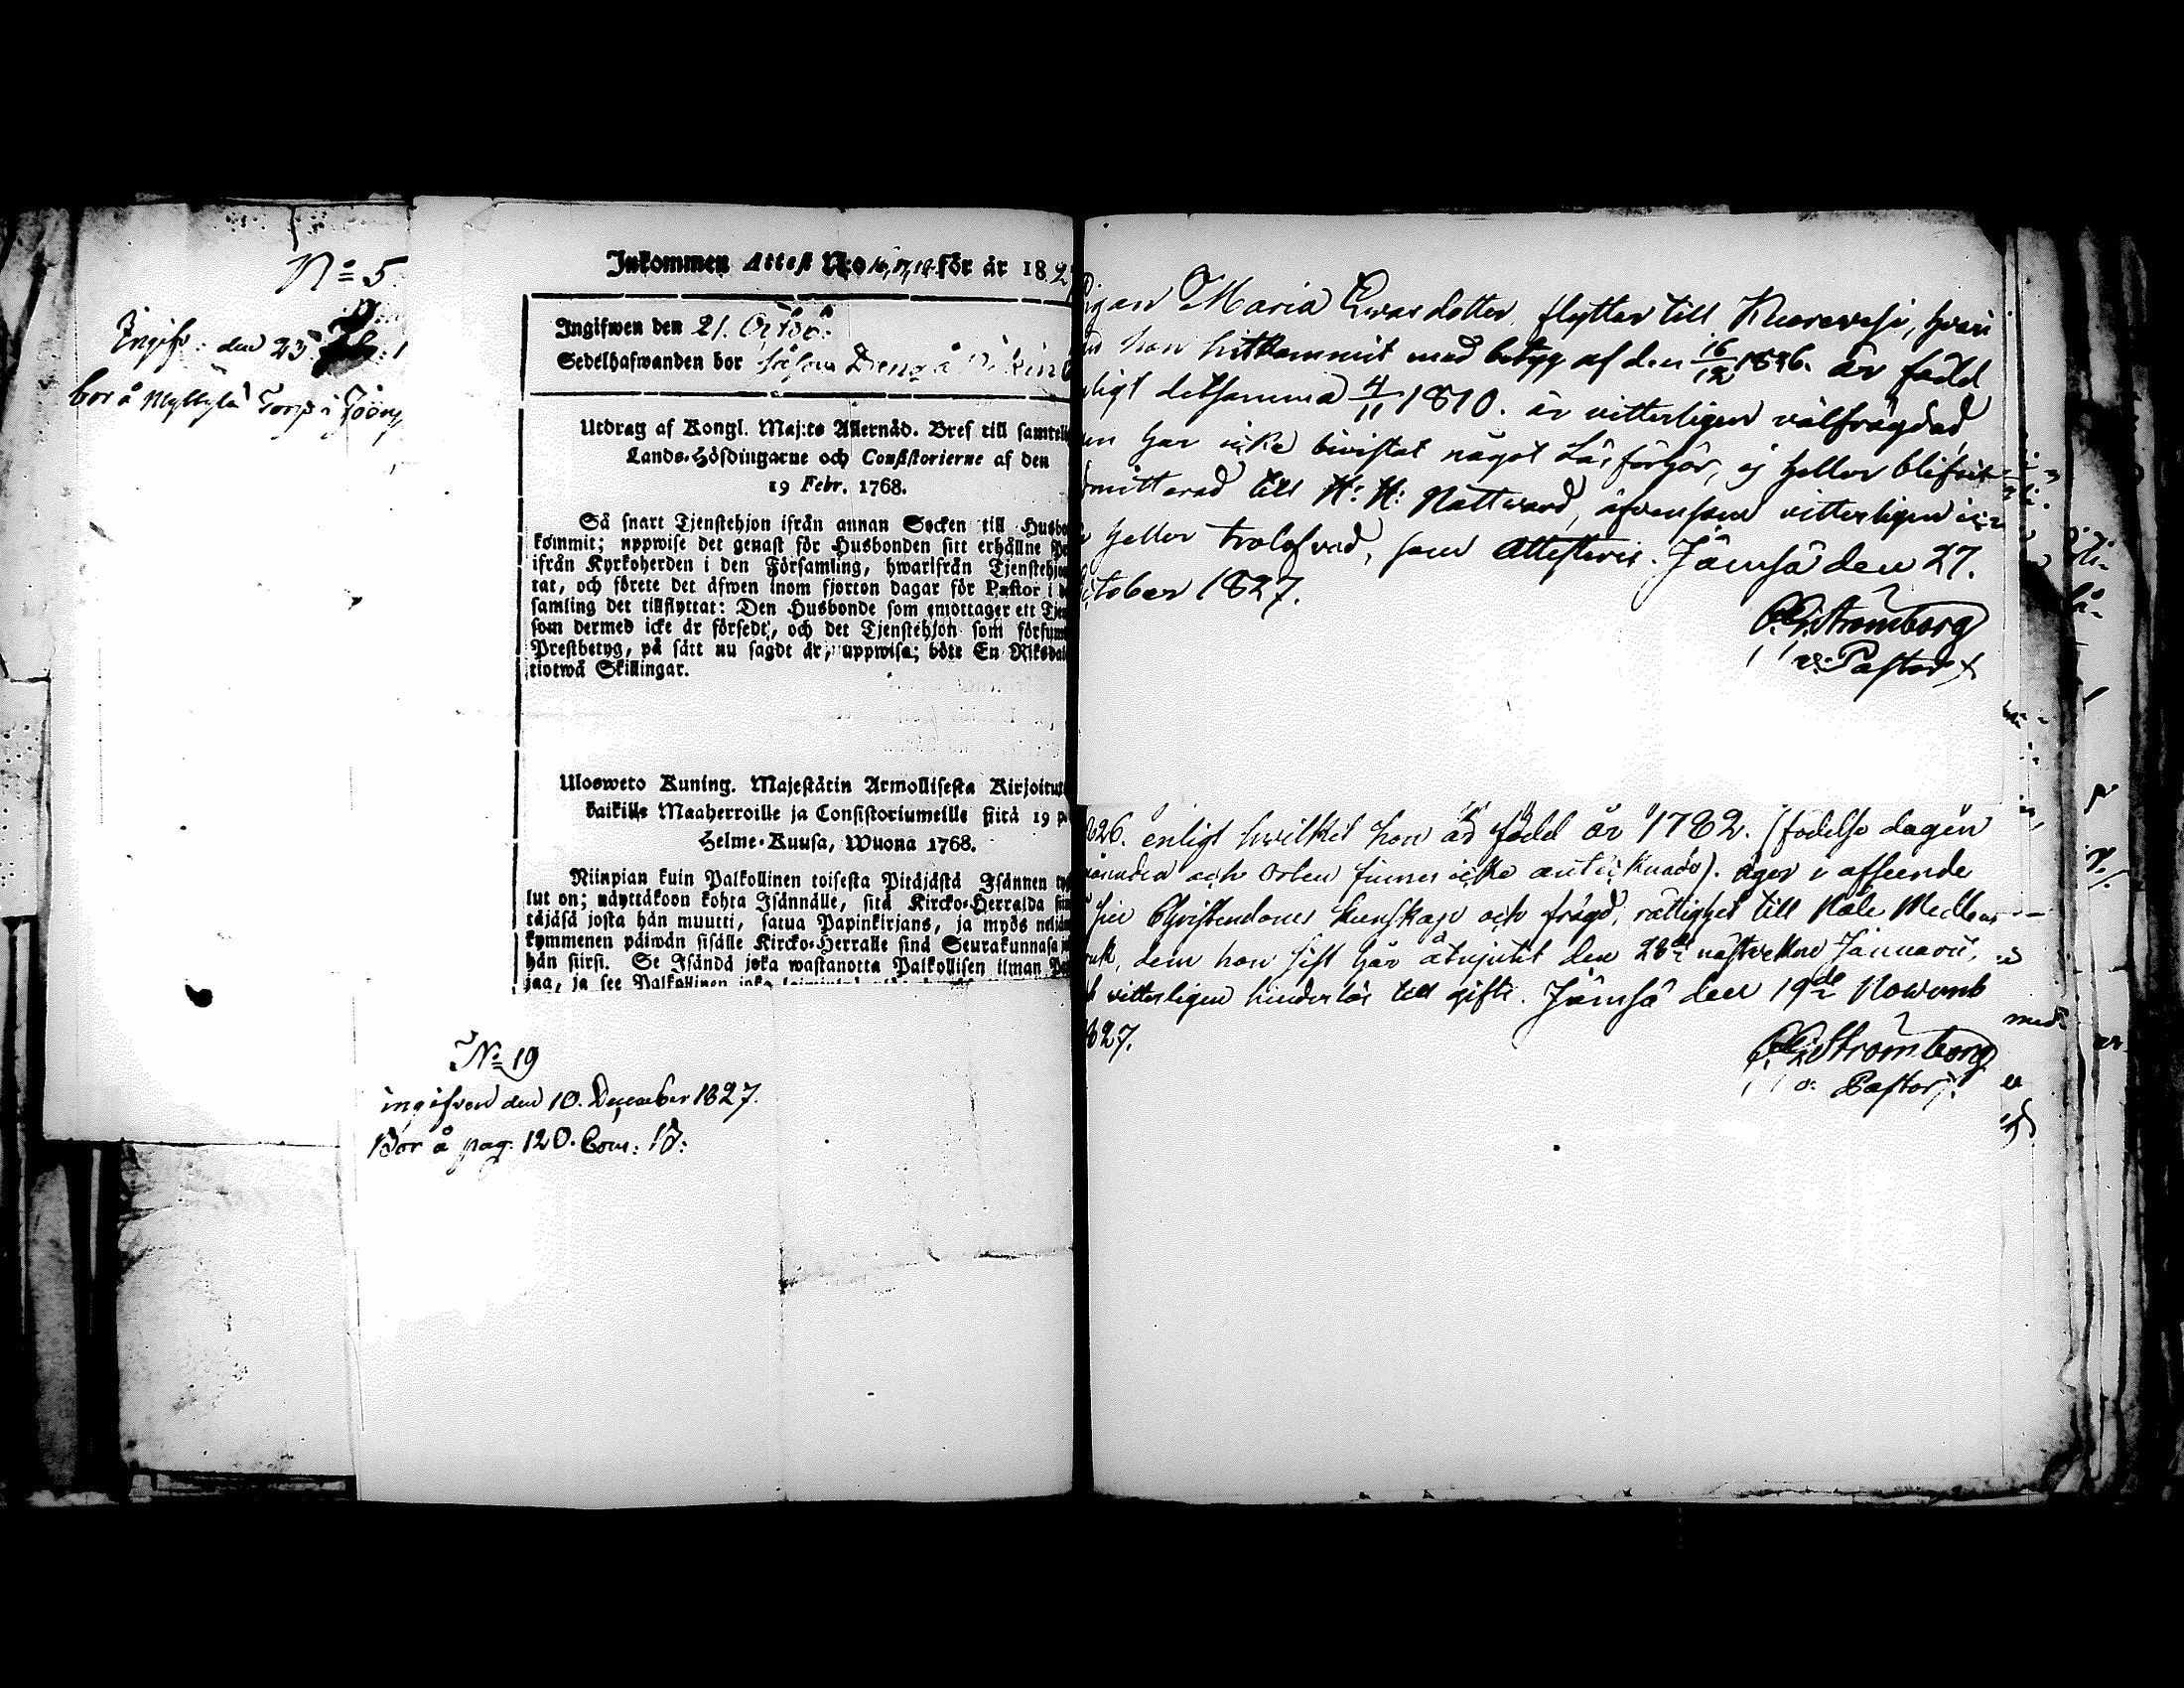 No 5.
Ingifv: den 23
bor å Myllylä Torp i
Inkommen Attest N:o 16,17,18 för år 182
Ingifwen den 21. Octob:
Sedelhafwanden bor såsom Dräng å
Utdrag af Kongl. Maj:ts Allernåd. Bref till samtel
Lands-Höfdingarne och Consistorierne af den
19 Febr. 1768.
Så snart Tjenstehjon ifrån annan Socken till Husbo
kommit; uppwise det genast för Husbonden sitt erhållne Pr
ifrån Kyrkoherden i den Församling, hwarifrån Tjenstehjo
tat, och förete det äfwen inom fjorton dagar för Pastor i d
samling det tillflyttat: Den Husbonde som emottager ett Tjen
som dermed icke är försedt, och det Tjenstehjon som försum
Prestbetyg, på sätt nu sagdt är, uppwisa; böte En Riksdal
tiotwå Skillingar.
Ulosweto Kuning. Majestätin Armollisesta Kirjoitux
kaikille Maaherroille ja Consistoriumeille siitä 19 p
Helme-Kuusa, Wuona 1768.
Niinpian kuin Palkollinen toisesta Pitäjästä Isännen ty
lut on; näyttäkoon kohta Isännälle, sitä Kircko-Herralda siin
täjäsä josta hän muutti, satua Papinkirjans, ja myös neljän
kymmenen päiwän sisälle Kircko-Herralle sinä Seurakunnasa jo
hän siirsi. Se Isändä joka wastanotta Palkollisen ilman Pa
jaa, ja see Palkollinen joka
No 19
ingifven den 10. December 1827.
Bor å pag. 120. Com: B:
igan Maria Ewasdotter flyttar till Kuorevesi, hvari
från hon hitkommit med betyg af den 16/12 1826. är född
nligt detsamma 4/11 1810. är vitterligen välfrägdad
en har icke bivistat något Läsförhör, ej heller blifvit
dmitterad till H: H: Nattward, äfvensom vitterligen icke
heller trolofvad, som attesteris. Jämsä den 27.
ctober 1827.
Strömborg
v: Pastor
1826. enligt hwilket hon är född år 1782. (födelse dagen
månaden och Orten finnes icke antecknade). äger i afseende
sin Christendoms kunskap och frägd, rättighet till Nåde Medlens
bruk, dem hon sist här åtnjutit den 28de nästvekne Januarii,
vitterligen hinderlös till gifte. Jämsä den 19de Novemb
1827.
Strömborg
v: Pastor